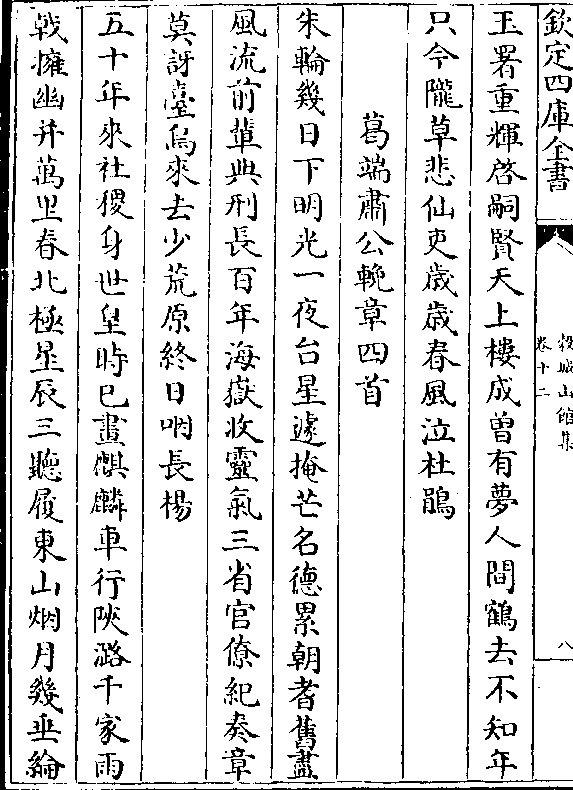 欽定四庫全書
穀城山館集
卷十二
八
玉署重輝啓嗣賢天上樓成曽有夢人間鶴去不知年
只今隴草悲仙吏歲歲春風泣杜鵑
葛端肅公輓章四首
朱輪幾日下明光一夜台星遽掩芒名德累朝耆舊盡
風流前輩典刑長百年海嶽收靈氣三省官僚紀奏章
莫訝臺烏來去少荒原終日咽長楊
五十年來社稷身世皇時已畫麒麟車行陜潞千家雨
戟擁幽并萬里春北極星辰三聽履東山烟月幾垂綸